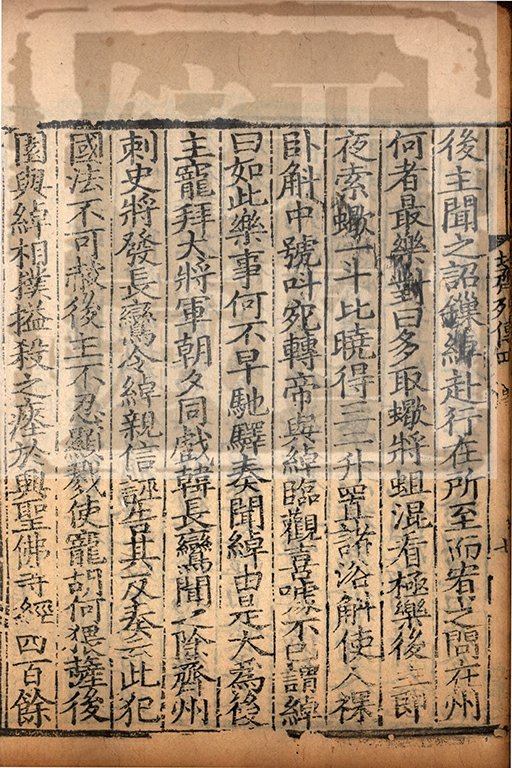 後主聞之詔鏁綽赴行在所至而宥之問在州
何者最樂對曰多取蠍將蛆混看極樂後主即
夜索蠍一斗比曉得三二升置諸浴斛使人裸
卧斛中號叫宛轉帝與綽臨觀喜噱不已謂綽
曰如此樂事何不早馳驛奏聞綽由是大為後
主寵拜大將軍朝夕同戲韓長鸞聞之除齊州
刺史將發長鸞令綽親信誣告其反奏云此犯
國法不可赦後主不忍顯戮使寵胡何猥薩後
園與綽相撲搤殺之瘞於興聖佛寺經四百餘
齊列傳四
七